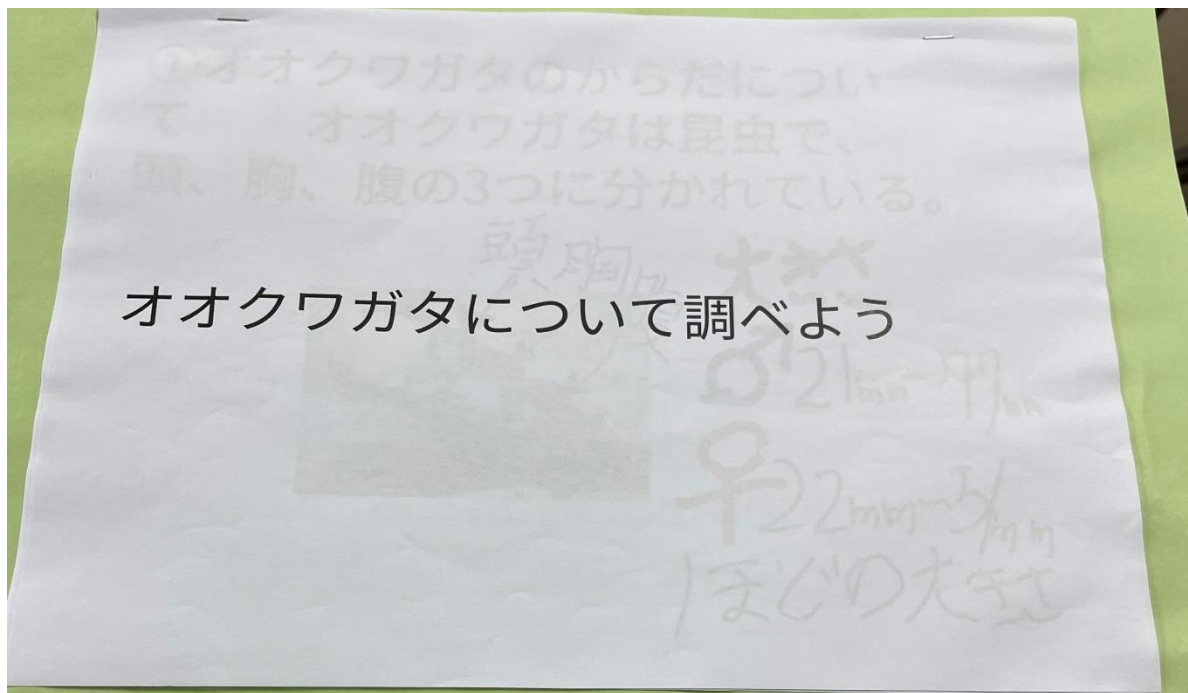 ①オオクワガタのからだについ
て　　オオクワガタは昆虫で、
頭、胸、腹の3つに分かれている。
頭 胸 大きさ
オオクワガタについて調べよう
♂21mm~77mm
♀22mm~51mm
ほどの大きさ